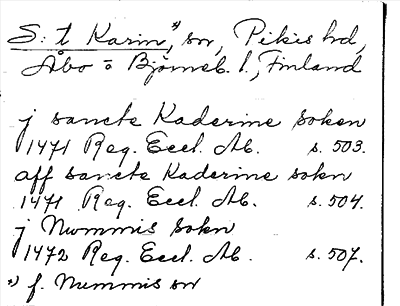 S:t Karin,*) sn, Pikis hd,
Åbo o Björneb. l., Finland
j sancte Kaderine soken
1471 Reg. Eccl. Ab. s. 503.
aff sancte Kaderine sokn
1471 Reg. Eccl. Ab. s. 504.
j Nummis sokn
1472 Reg. Eccl. Ab. s. 507.
*) f. Nummis sn